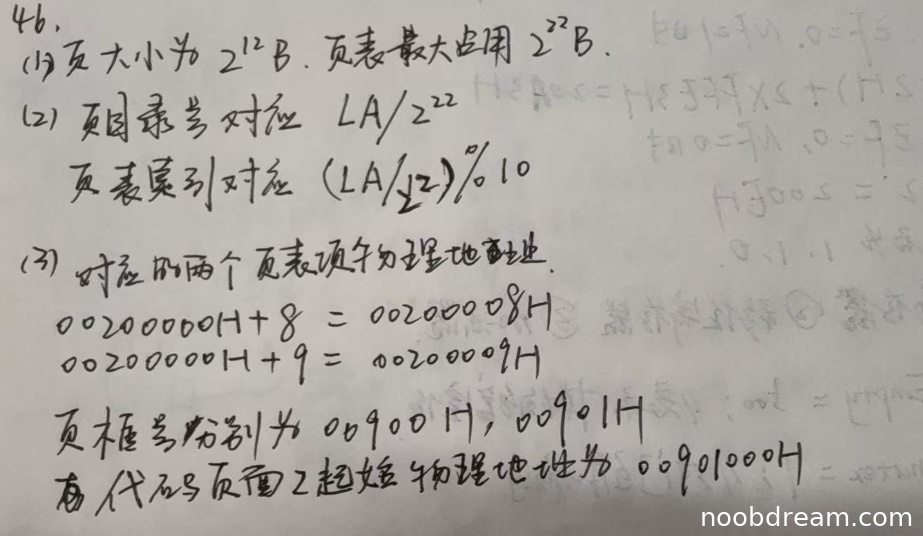 46.
(1) 页大小为 2^12 B. 页表最大占用 2^22 B.
(2) 页目录号对应 LA/2^22
页表索引对应 (LA/2^12)%10
(3) 对应的两个页表项物理地址.
00200000H+8 = 00200008H
00200000H+9 = 00200009H
页框号分别为 00900H, 00901H
代码页面2起始物理地址为 00901000H
noobdream.com